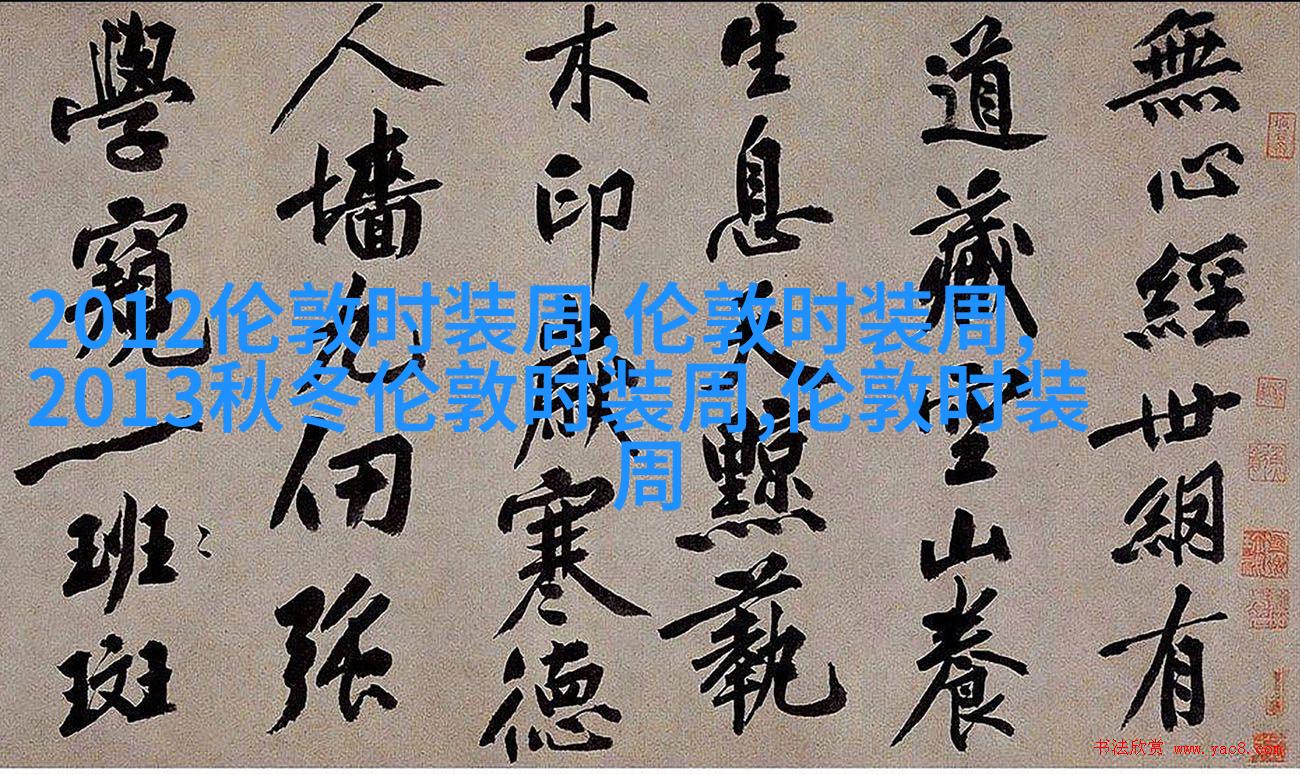 無心經世網有
道藏丘山養
生息天黥蓺
木印歲寒德
人墻九仞強
學窺一班斑
2012伦敦时装周,伦敦时装周,
2013秋冬伦敦时装周,伦敦时装
周
书法欣赏 www.yac8.com